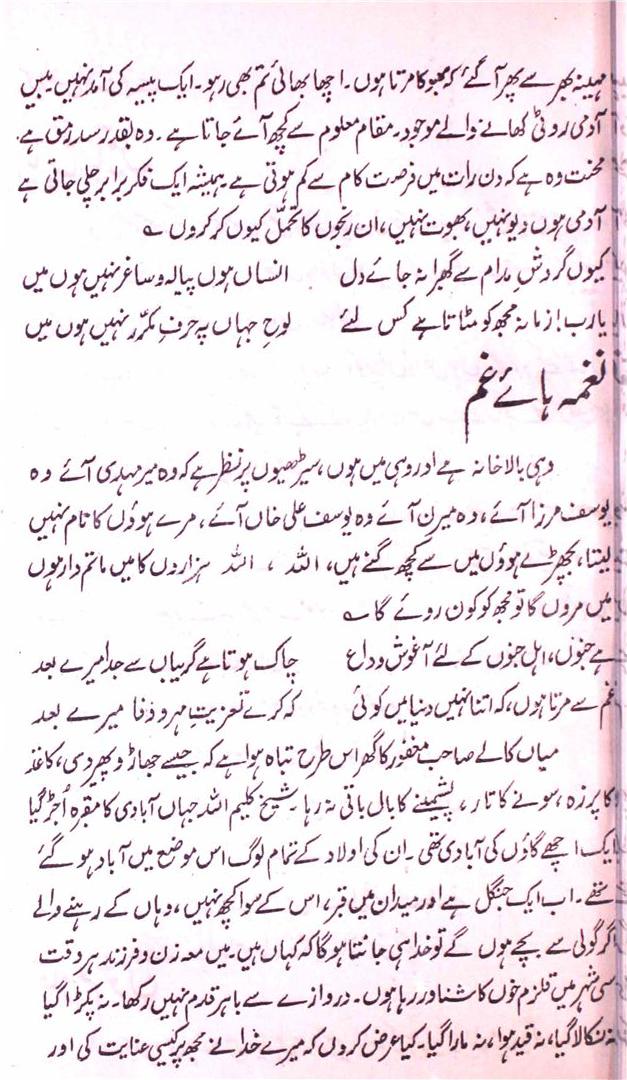 مہینہ بھر سے پھر آگئے کہ بھوکا مرتا ہوں۔ اچھا بھائی تم بھی رہو۔ ایک پیسہ کی آمد نہیں بیس
آدمی روٹی کھانے والے موجود۔ مقام معلوم سے کچھ آئے جاتا ہے۔ وہ بقدر سد رمق ہے۔
محنت وہ ہے کہ دن رات میں فرصت کام سے کم ہوتی ہے ہمیشہ ایک فکر برابر چلی جاتی ہے
آدمی ہوں دیو نہیں، بھوت نہیں، ان رنجوں کا تحمل کیوں کر کروں ؎
کیوں گردشِ مدام سے گھبرا نہ جائے دل انساں ہوں پیالہ و ساغر نہیں ہوں میں
یارب! زمانہ مجھ کو مٹاتا ہے کس لئے لوحِ جہاں پہ حرفِ مکرّر نہیں ہوں میں
نغمہ ہائے غم
وہی بالا خانہ ہے اور وہی میں ہوں، سیڑھیوں پر نظر ہے کہ وہ میر مہدی آئے وہ
یوسف مرزا آئے، وہ میرن آئے وہ یوسف علی خاں آئے، مرے ہوؤں کا نام نہیں
لیتا، بچھڑے ہوؤں میں سے کچھ گنے ہیں، اللہ ، اللہ ہزاروں کا میں ماتم دار ہوں
میں مروں گا تو مجھ کو کون روئے گا ؎
ہے جنوں، اہل جنوں کے لئے آغوش وداع چاک ہوتا ہے گریباں سے جدا میرے بعد
غم سے مرتا ہوں، کہ اتنا نہیں دنیا میں کوئی کہ کرے تعزیتِ مہر و وفا میرے بعد
میاں کالے صاحب مغفور کا گھر اس طرح تباہ ہوا ہے کہ جیسے جھاڑو پھیر دی، کاغذ
کا پرزہ، سونے کا تار، پشمینے کا بال باقی نہ رہا۔ شیخ کلیم اللہ جہاں آبادی کا مقبرہ اُجڑ گیا
ایک اچھے گاؤں کی آبادی تھی۔ ان کی اولاد کے تمام لوگ اس موضع میں آباد ہو گئے
تھے۔ اب ایک جنگل ہے اور میدان میں قبر، اس کے سوا کچھ نہیں، وہاں کے رہنے والے
اگر گولی سے بچے ہوں گے تو خدا ہی جانتا ہوگا کہ کہاں ہیں۔ میں معہ زن و فرزند ہر وقت
اسی شہر میں قلزم خوں کا شناور رہا ہوں۔ دروازے سے باہر قدم نہیں رکھا۔ نہ پکڑا گیا
نہ نکالا گیا، نہ قید ہوا، نہ مارا گیا۔ کیا عرض کروں کہ میرے خدا نے مجھ پر کیسی عنایت کی اور